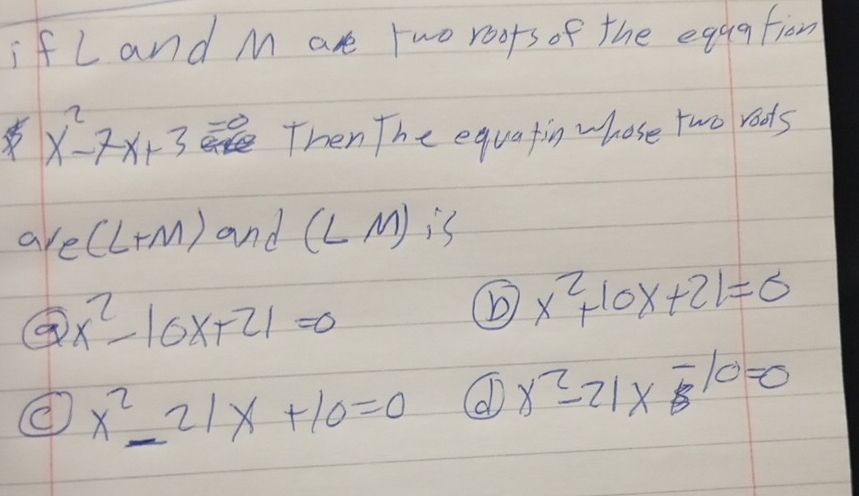 if L and M are two roots of the equation
x²-7x+3=0 Then The equatin whose two roots
are (L+M) and (L M) is
ⓐ x²-10x+21=0 ⓑ x²+10x+21=0
ⓒ x²-21x+10=0 ⓓ x²-21x-10=0